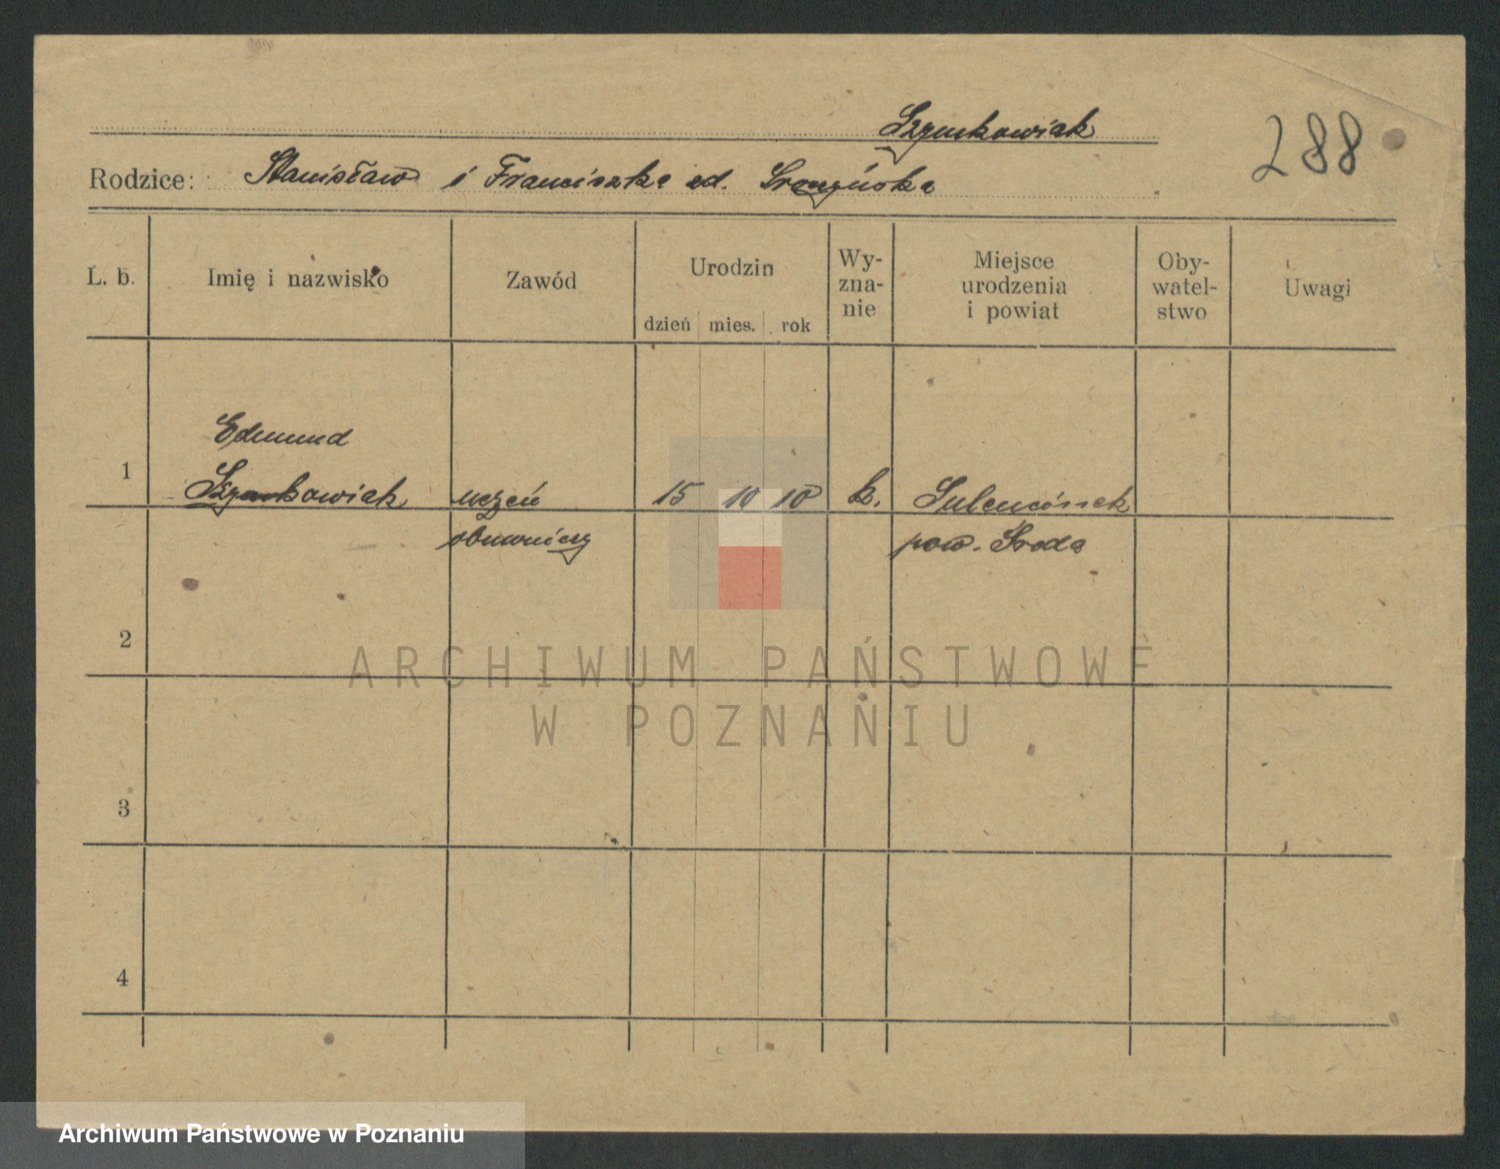 Szymkowiak
288
Rodzice: Stanisław i Franciszka zd.
L. b.
Imię i nazwisko
Zawód
Urodzin
dzień mies. rok
Wy-
zna-
nie
Miejsce
urodzenia
i powiat
Oby-
watel-
stwo
Uwagi
1
Edmund
Szymkowiak
uczeń
obuwniczy
15 10 10
k.
pow. Środa
2
3
4
ARCHIWUM PAŃSTWOWE
W POZNANIU
Archiwum Państwowe w Poznaniu